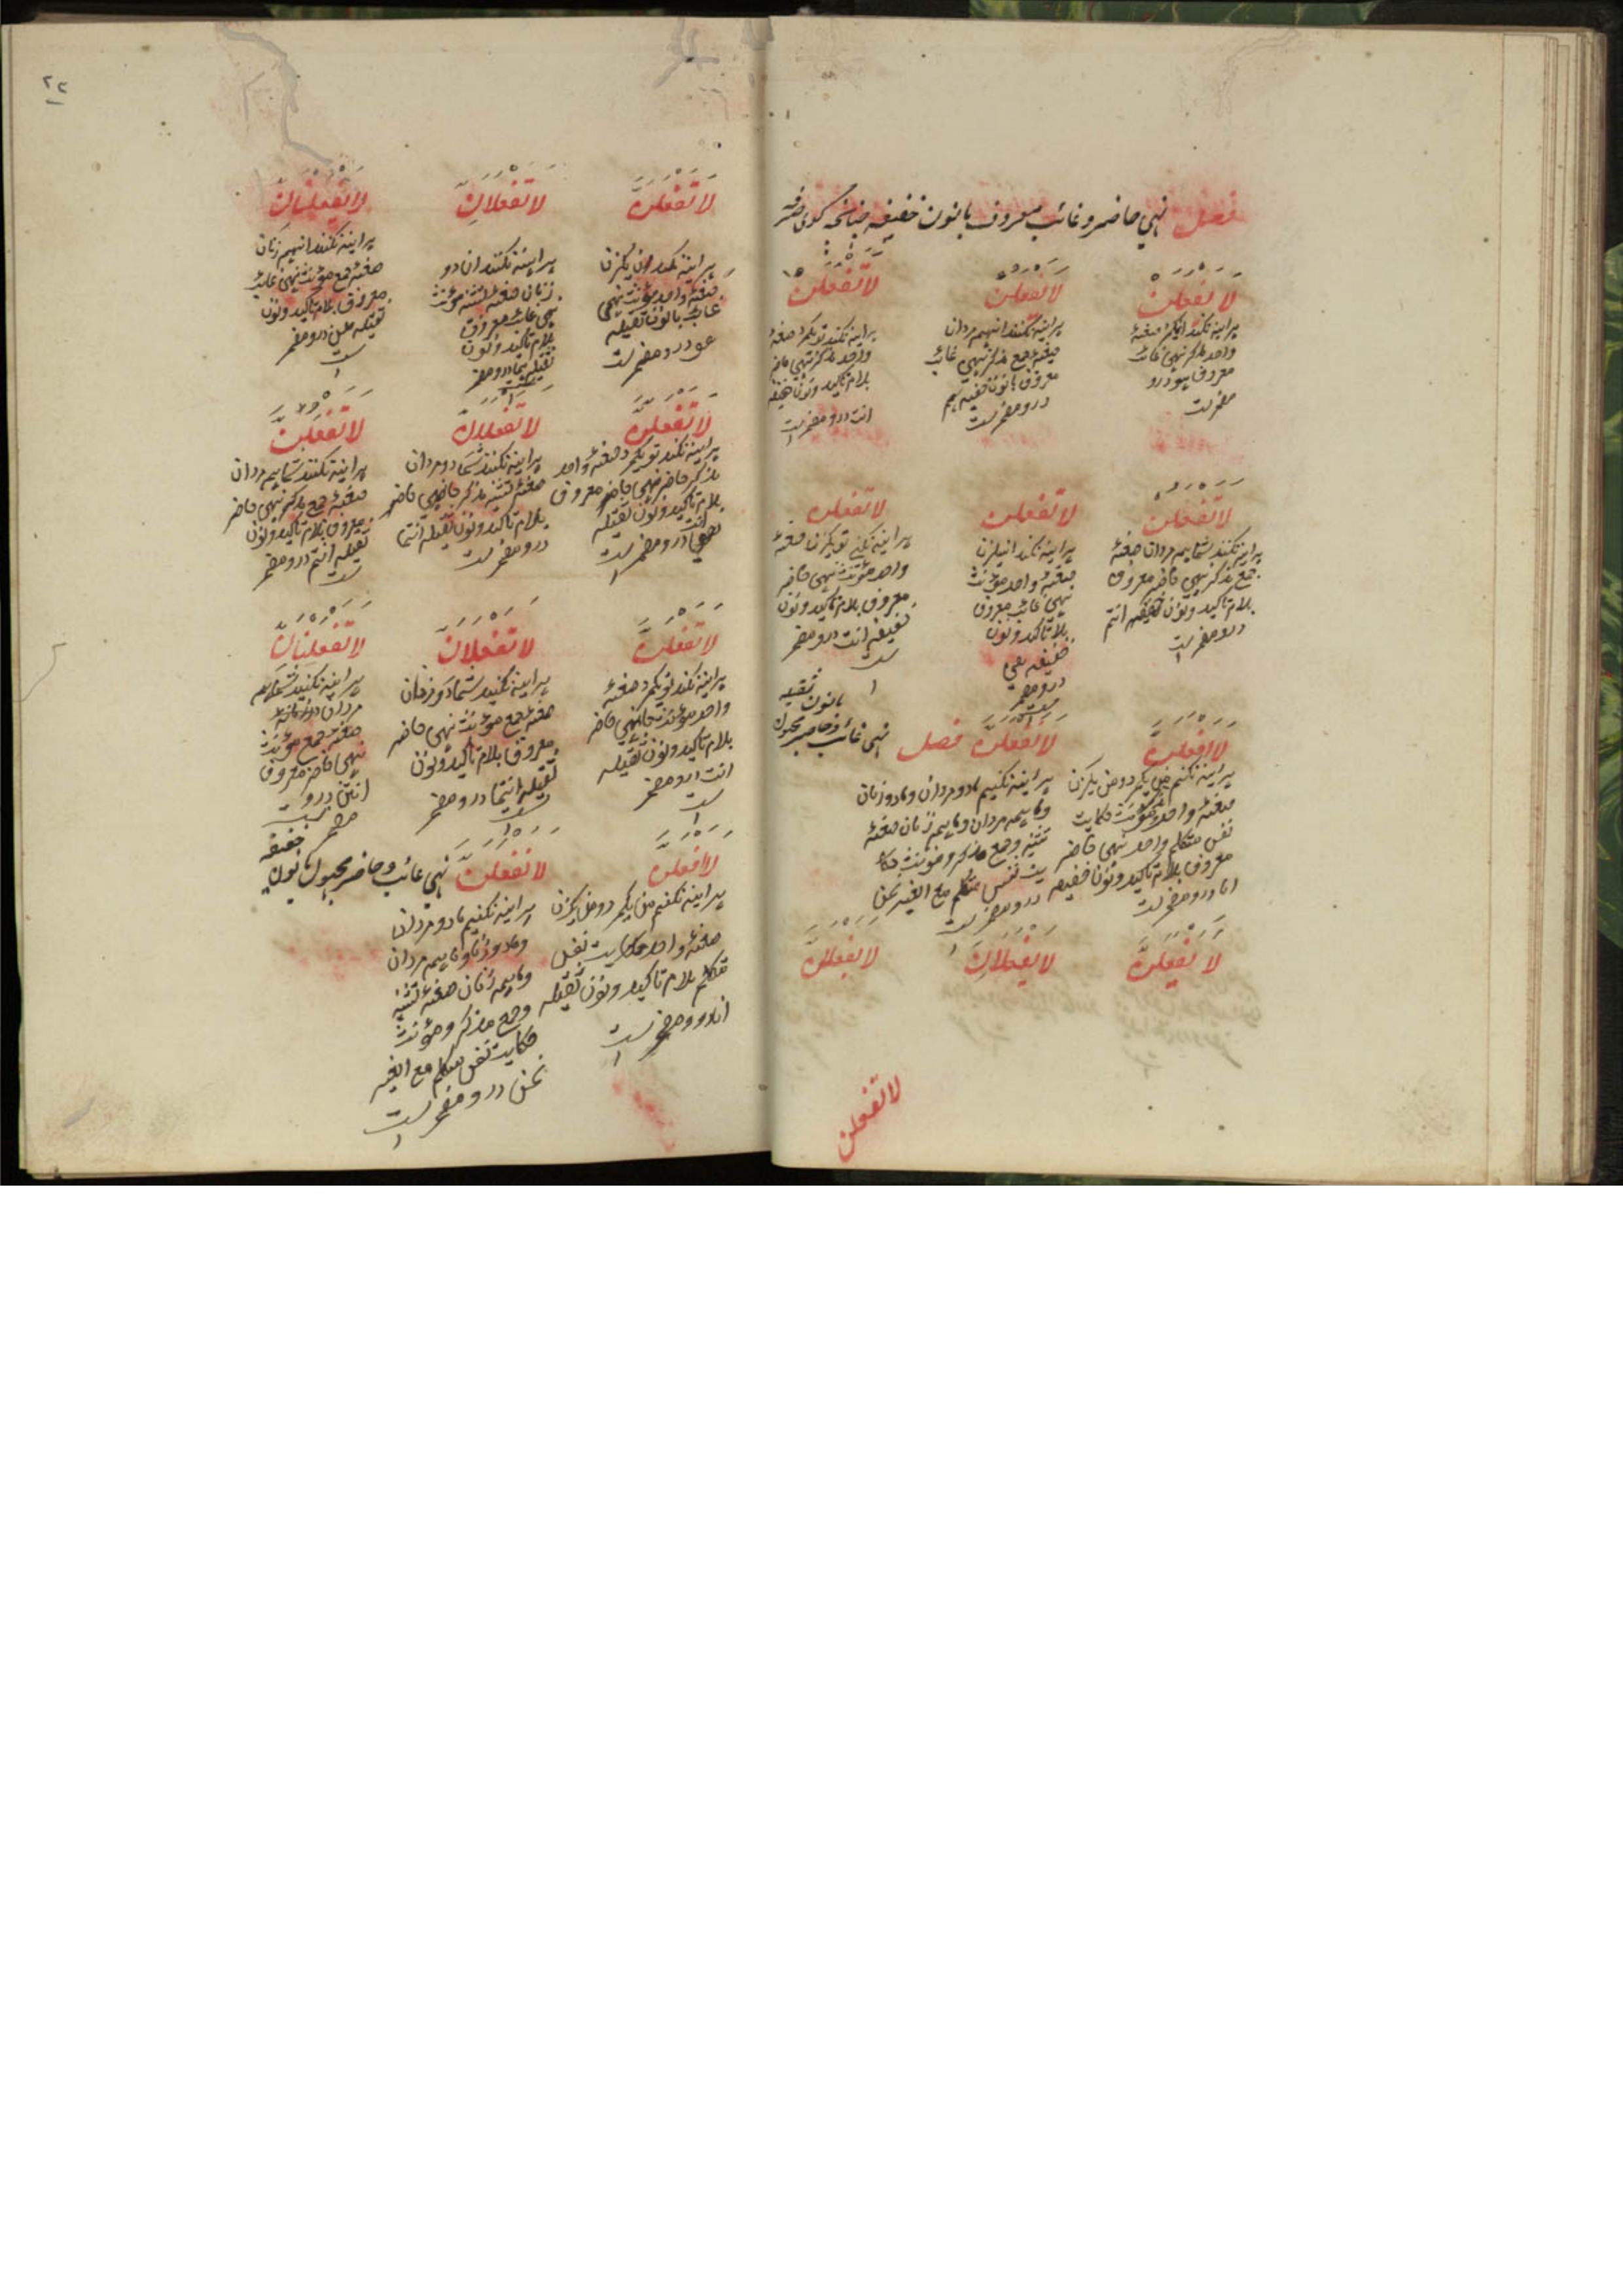 فصل نهي حاضر و غائب معروف با نون خفیفه چنانچه گوی
لا یفعلن
هرآینه نکند آن یکمرد صیغهٔ
واحد مذکر نهي غائب
معروف هو درو
مضمرست
لا یفعلن
هرآینه نکنند آنهمه مردان
صیغهٔ جمع مذکر نهي غائب
معروف با نون خفیفه هم
درو مضمرست
لا تفعلن
هرآینه نکند تو یکمرد صیغهٔ
واحد مذکر نهي حاضر
بلام تاکید و نون خفیفه
انت درو مضمرست
لا تفعلن
هرآینه نکنند شما همه مردان صیغهٔ
جمع مذکر نهي حاضر معروف
بلام تاکید و نون خفیفه انتم
درو مضمرست
لا تفعلن
هرآینه نکند آن یکزن
صیغهٔ واحد مؤنث
نهي غائب معروف
بلا تاکید و نون
خفیفه هي
درو مضمر
ست
لا تفعلن
هرآینه نکني تو یکزن صیغهٔ
واحد مؤنث نهي حاضر
معروف بلام تاکید و نون
خفیفه انت درو مضمر
ست
لا افعلن
هرآینه نکنم من یکمرد و من یکزن
صیغهٔ واحد مذکر مؤنث حکایت
نفس متکلم واحد نهي حاضر
معروف بلام تاکید و نون خفیفه
انا درو مضمرست
لا نفعلن
هرآینه نکنیم ما دو مردان و ما دو زنان
و ما همه مردان و ما همه زنان صیغهٔ
تثنیه و جمع مذکر و مؤنث حکا
یت نفس متکلم مع الغیر نحن
درو مضمرست
فصل نهي غائب و حاضر مجهول
با نون ثقیله
لا یفعلن
لا یفعلان
لا یفعلن
لا تفعلن
۲۲
لا تفعلن
هرآینه نکند آن یکزن
صیغهٔ واحد مؤنث نهي
غائب با نون ثقیله
هو درو مضمرست
لا تفعلان
هرآینه نکنند آن دو
زنان صیغهٔ تثنیه مؤنث
نهي غائب معروف
بلام تاکید و نون
ثقیله هما درو مضمر
ست
لا یفعلنان
هرآینه نکنند آنهمه زنان
صیغهٔ جمع مؤنث نهي غائب
معروف بلام تاکید و نون
ثقیله هن درو مضمر
ست
لا تفعلن
هرآینه نکند تو یکمرد صیغهٔ واحد
مذکر حاضر نهي حاضر معروف
بلام تاکید و نون ثقیله
انت درو مضمرست
لا تفعلان
هرآینه نکنند شما دو مردان
صیغهٔ تثنیه مذکر حاضر نهي حاضر
بلام تاکید و نون ثقیله انتما
درو مضمرست
لا تفعلن
هرآینه نکنند شما همه مردان
صیغهٔ جمع مذکر نهي حاضر
معروف بلام تاکید و نون
ثقیله انتم درو مضمر
ست
لا تفعلن
هرآینه نکند تو یکمرد صیغهٔ
واحد مؤنث نهي حاضر
بلام تاکید و نون ثقیله
انت درو مضمر
ست
لا تفعلان
هرآینه نکنید شما دو زنان
صیغهٔ جمع مؤنث نهي حاضر
معروف بلام تاکید و نون
ثقیله انتما درو مضمر
ست
لا تفعلنان
هرآینه نکنید شما همه
مردان
صیغهٔ جمع مؤنث
نهي حاضر معروف
انتن درو
مضمرست
لا افعلن
هرآینه نکنم من یکمرد و من یکزن
صیغهٔ واحد حکایت نفس
متکلم بلام تاکید و نون ثقیله
انا درو مضمرست
لا نفعلن
هرآینه نکنیم ما دو مردان
و ما دو زنان و ما همه مردان
و ما همه زنان صیغهٔ تثنیه
و جمع مذکر و مؤنث
حکایت نفس متکلم مع الغیر
نحن درو مضمرست
نهي غائب و حاضر مجهول با نون
خفیفه